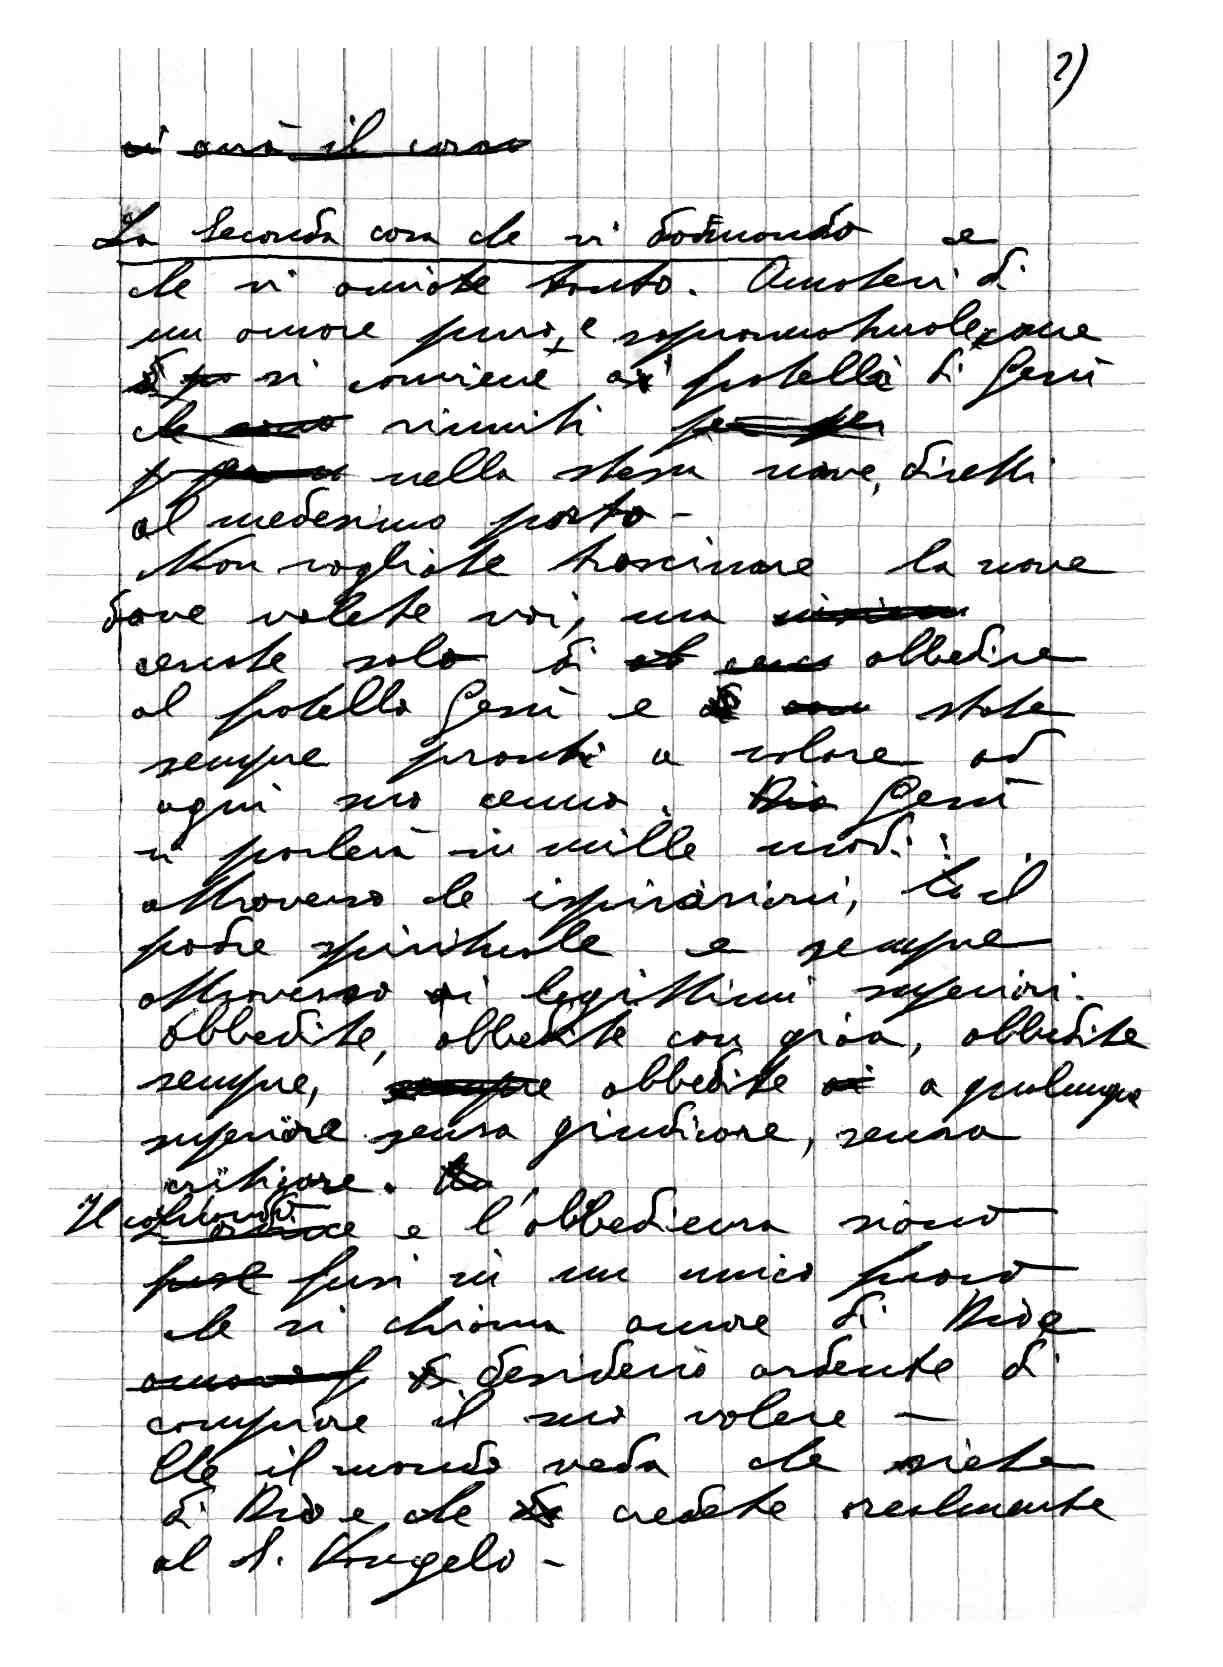 2)
vi avrà il corso
La seconda cosa che vi domando e
che vi amiate tanto. Amatevi di
un amore puro, e sopranaturale come
si conviene ai fratelli di Gesù
che sono riuniti per per
nella stessa nave, diretti
al medesimo porto -
Non vogliate trascinare la nave
dove volete voi, ma
cercate solo di obbedire
al fratello Gesù e state
sempre pronti a volare ad
ogni suo cenno. Dio Gesù
vi parlerà in mille modi:
attraverso le ispirazioni, il
padre spirituale e sempre
attraverso i legittimi superiori.
Obbedite, obbedite con gioia, obbedite
sempre, sempre obbedite ai a qualunque
superiore senza giudicare, senza
criticare.
Il comando e l'obbedienza siano
fusi in un unico fuoco
che si chiama amore di Dio e
desiderio ardente di
compiere il suo volere -
Che il mondo veda che siete
di Dio e che credete realmente
al S. Vangelo -